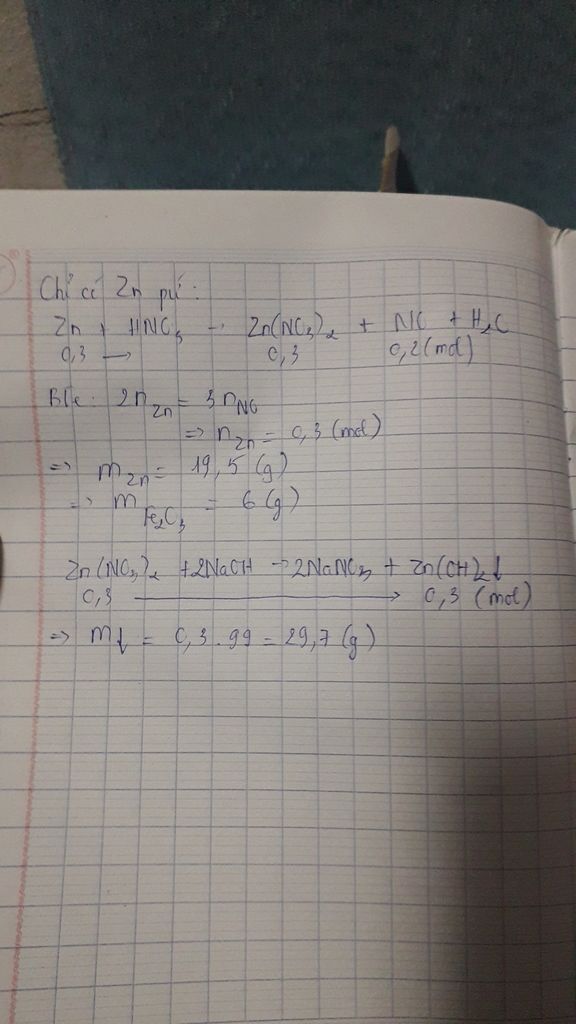 Chỉ có Zn pứ:
Zn + HNO3 → Zn(NO3)2 + NO + H2O
0,3 → 0,3 0,2 (mol)
BTe: 2nZn = 3nNO
=> nZn = 0,3 (mol)
=> mZn = 19,5 (g)
=> mFe2O3 = 6 (g)
Zn(NO3)2 + 2NaOH → 2NaNO3 + Zn(OH)2↓
0,3 → 0,3 (mol)
=> m↓ = 0,3 . 99 = 29,7 (g)